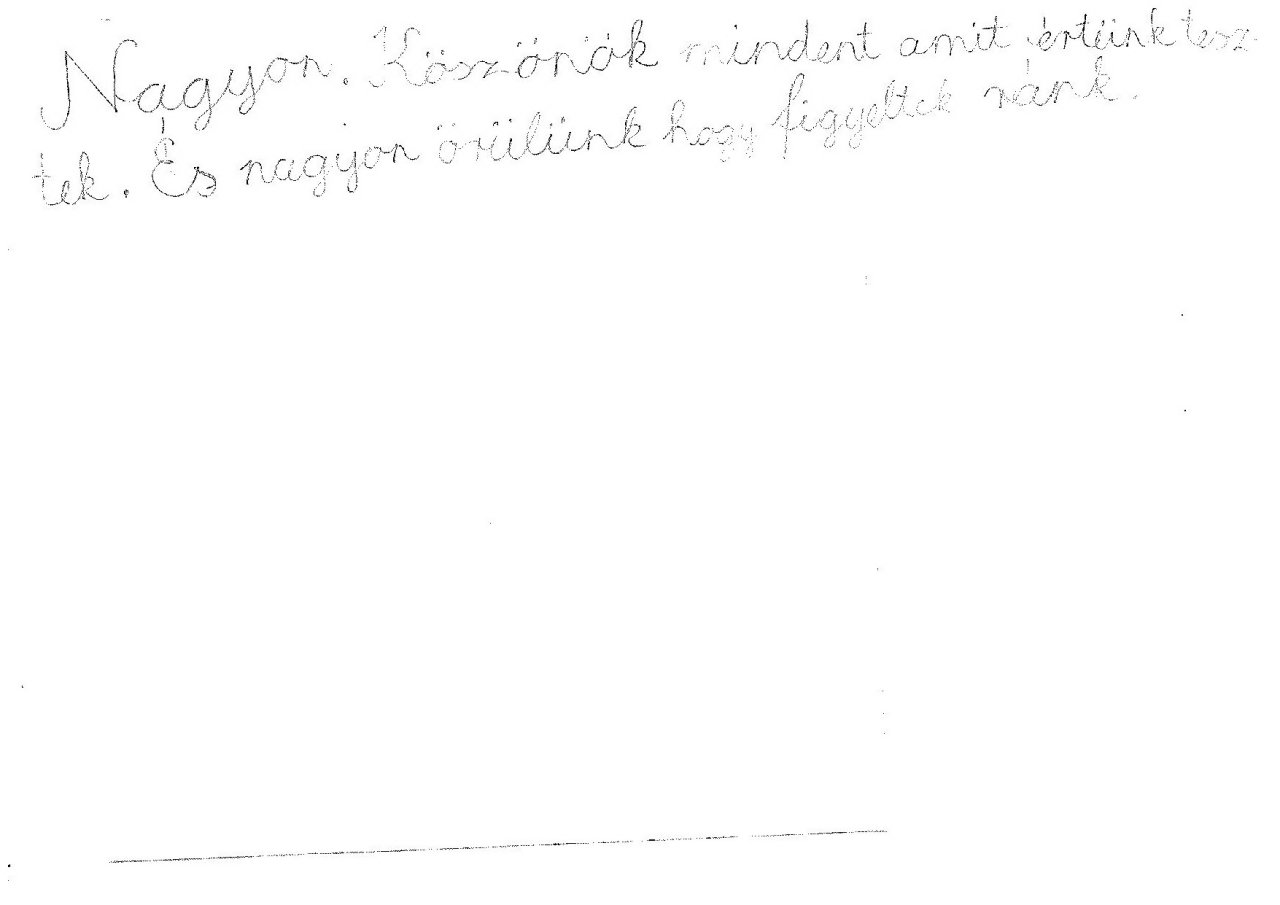 Nagyon. Köszönök mindent amit értünk tesz-
tek. És nagyon örülünk hogy figyeltek ránk.